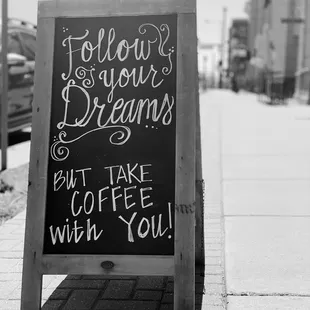 Follow
your
Dreams
BUT TAKE
COFFEE
with YOU!